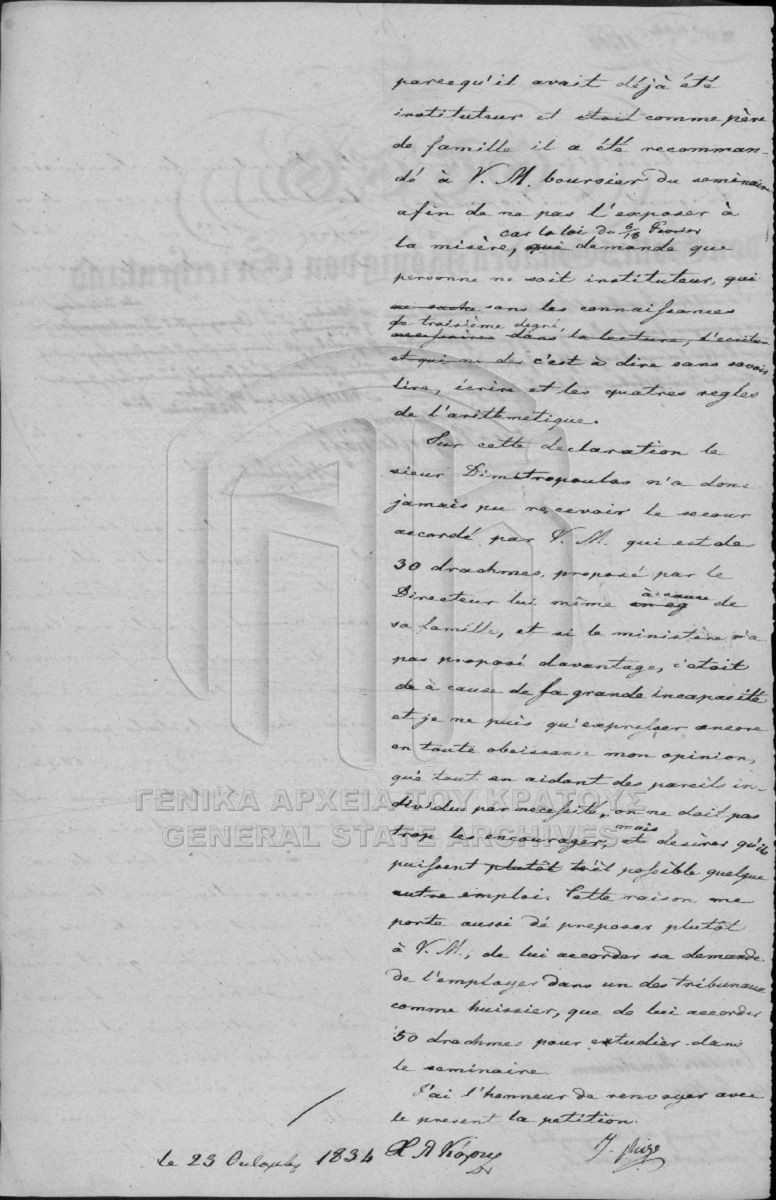 parcequ'il avait déjà été
instituteur et etait comme père
de famille il a été recomman-
dé à V. M. boursier du seminaire
afin de ne pas l'exposer à
car la loi du 6/18 Fevrier
la misère, qui demande que
personne ne soit instituteur, qui
sans les connaissances
de troisième degré,
necessaires dans la lecture, d'ecriture
et qui ne de c'est à dire sans savoir
lire, écrire et les quatres regles
de l'arithmetique.
Sur cette declaration le
sieur Dimitropoulos n'a donc
jamais pu recevoir le secour
accordé par V. M. qui est de
30 drachmes, proposé par le
à cause
Directeur lui même en eg de
sa famille, et si le ministère n'a
pas proposé davantage, c'etoit
de à cause de sa grande incapasité
et je ne puis qu'expresser encore
en toute obeissance mon opinion,
qu'e tout en aidant des pareils in-
dividus par necessité, on ne doit pas
mais
trop les encourager, et desirer qu'ils
puissent plutôt s'il possible quelque
autre emploi. Cette raison me
porte aussi dé preposer plutôt
à V. M.; de lui accorder sa demande
de l'employer dans un des tribunaux
comme huissier, que de lui accorder
50 drachmes pour estudier dans
le seminaire.
J'ai l'honneur de renvoyer avec
le present la petition.
le 23 Octombre 1834
J. Rizo
ΓΕΝΙΚΑ ΑΡΧΕΙΑ ΤΟΥ ΚΡΑΤΟΥΣ
GENERAL STATE ARCHIVES